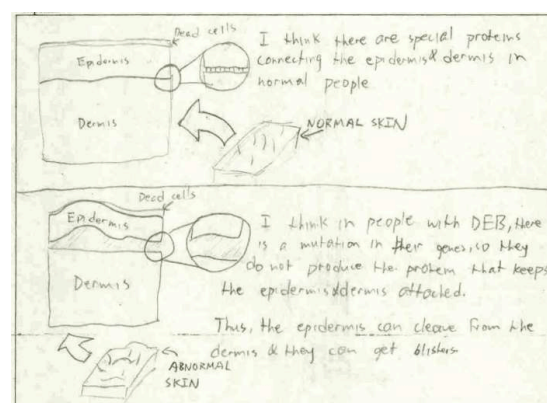 Dead cells
Epidermis
Dermis
I think there are special proteins
connecting the epidermis & dermis in
normal people
NORMAL SKIN
Dead cells
Epidermis
Dermis
I think in people with DEB, there
is a mutation in their genes, so they
do not produce the protein that keeps
the epidermis & dermis attached.
Thus, the epidermis can cleave from the
dermis & they can get blisters
ABNORMAL
SKIN